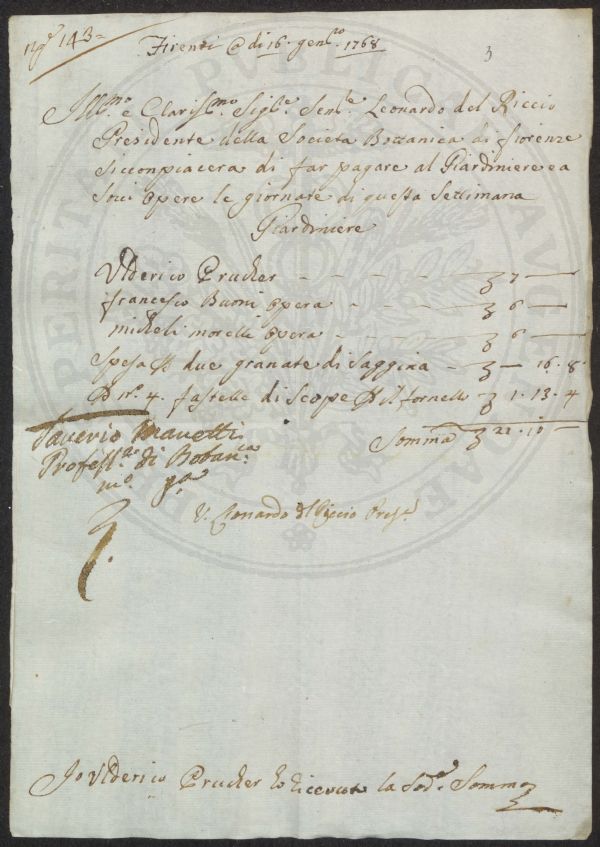 143
Firenze @ di 16. gen.ro 1768
3
Ill.mo e Claris.mo Sig.e Sen.e Leonardo del Riccio
Presidente della Societa Bottanica di fiorenze
si conpiacera di far pagare al Giardiniere e a
Soui Opere le giornate di questa Settimana
Giardiniere
Vlderico Prucker 7
francesco Buoni Opera 6
micheli morelli Opera 6
Spesa due granate di Saggina 16. 8
nr.o 4. fastelle di Scope il fornello 1. 13. 4
Somma 21. 10
Saverio Manetti
Profess.re di Botan.ca
m.o p.a
V. Leonardo del Riccio Pres.e
Jo Vlderico Prucker ho riceuuto la Sod.a Somma
PUBLICA